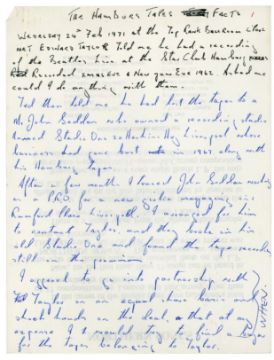 THE HAMBURG TAPES FACTS
WEDNESDAY 24th Feb 1971 at the Top Rank Ballroom
MET EDWARD TAYLOR Told me he had a recording
of the Beatles live at the Star Club Hamburg
Recorded New Years Eve 1962. Asked me
could I do anything with them.
Ted then told me he had lent the tapes to a
Mr John Seddon who owned a recording studio
named Studio One Liverpool whose
business had gone bust in 1967 along with
his Hamburg Tapes.
After a few months I traced John Seddon working
as a P.R.O. for a new girlie magazine in
Rumford Place Liverpool. I arranged for him
to contact Taylor, and they broke in his
old Studio One and found the tape recorder
still in the premises.
I agreed to go into partnership with
Taylor on an equal share basis and
shook hands on the deal, & that at my
expense I would try to find a
for the tapes belonging to Taylor.
WHEN.